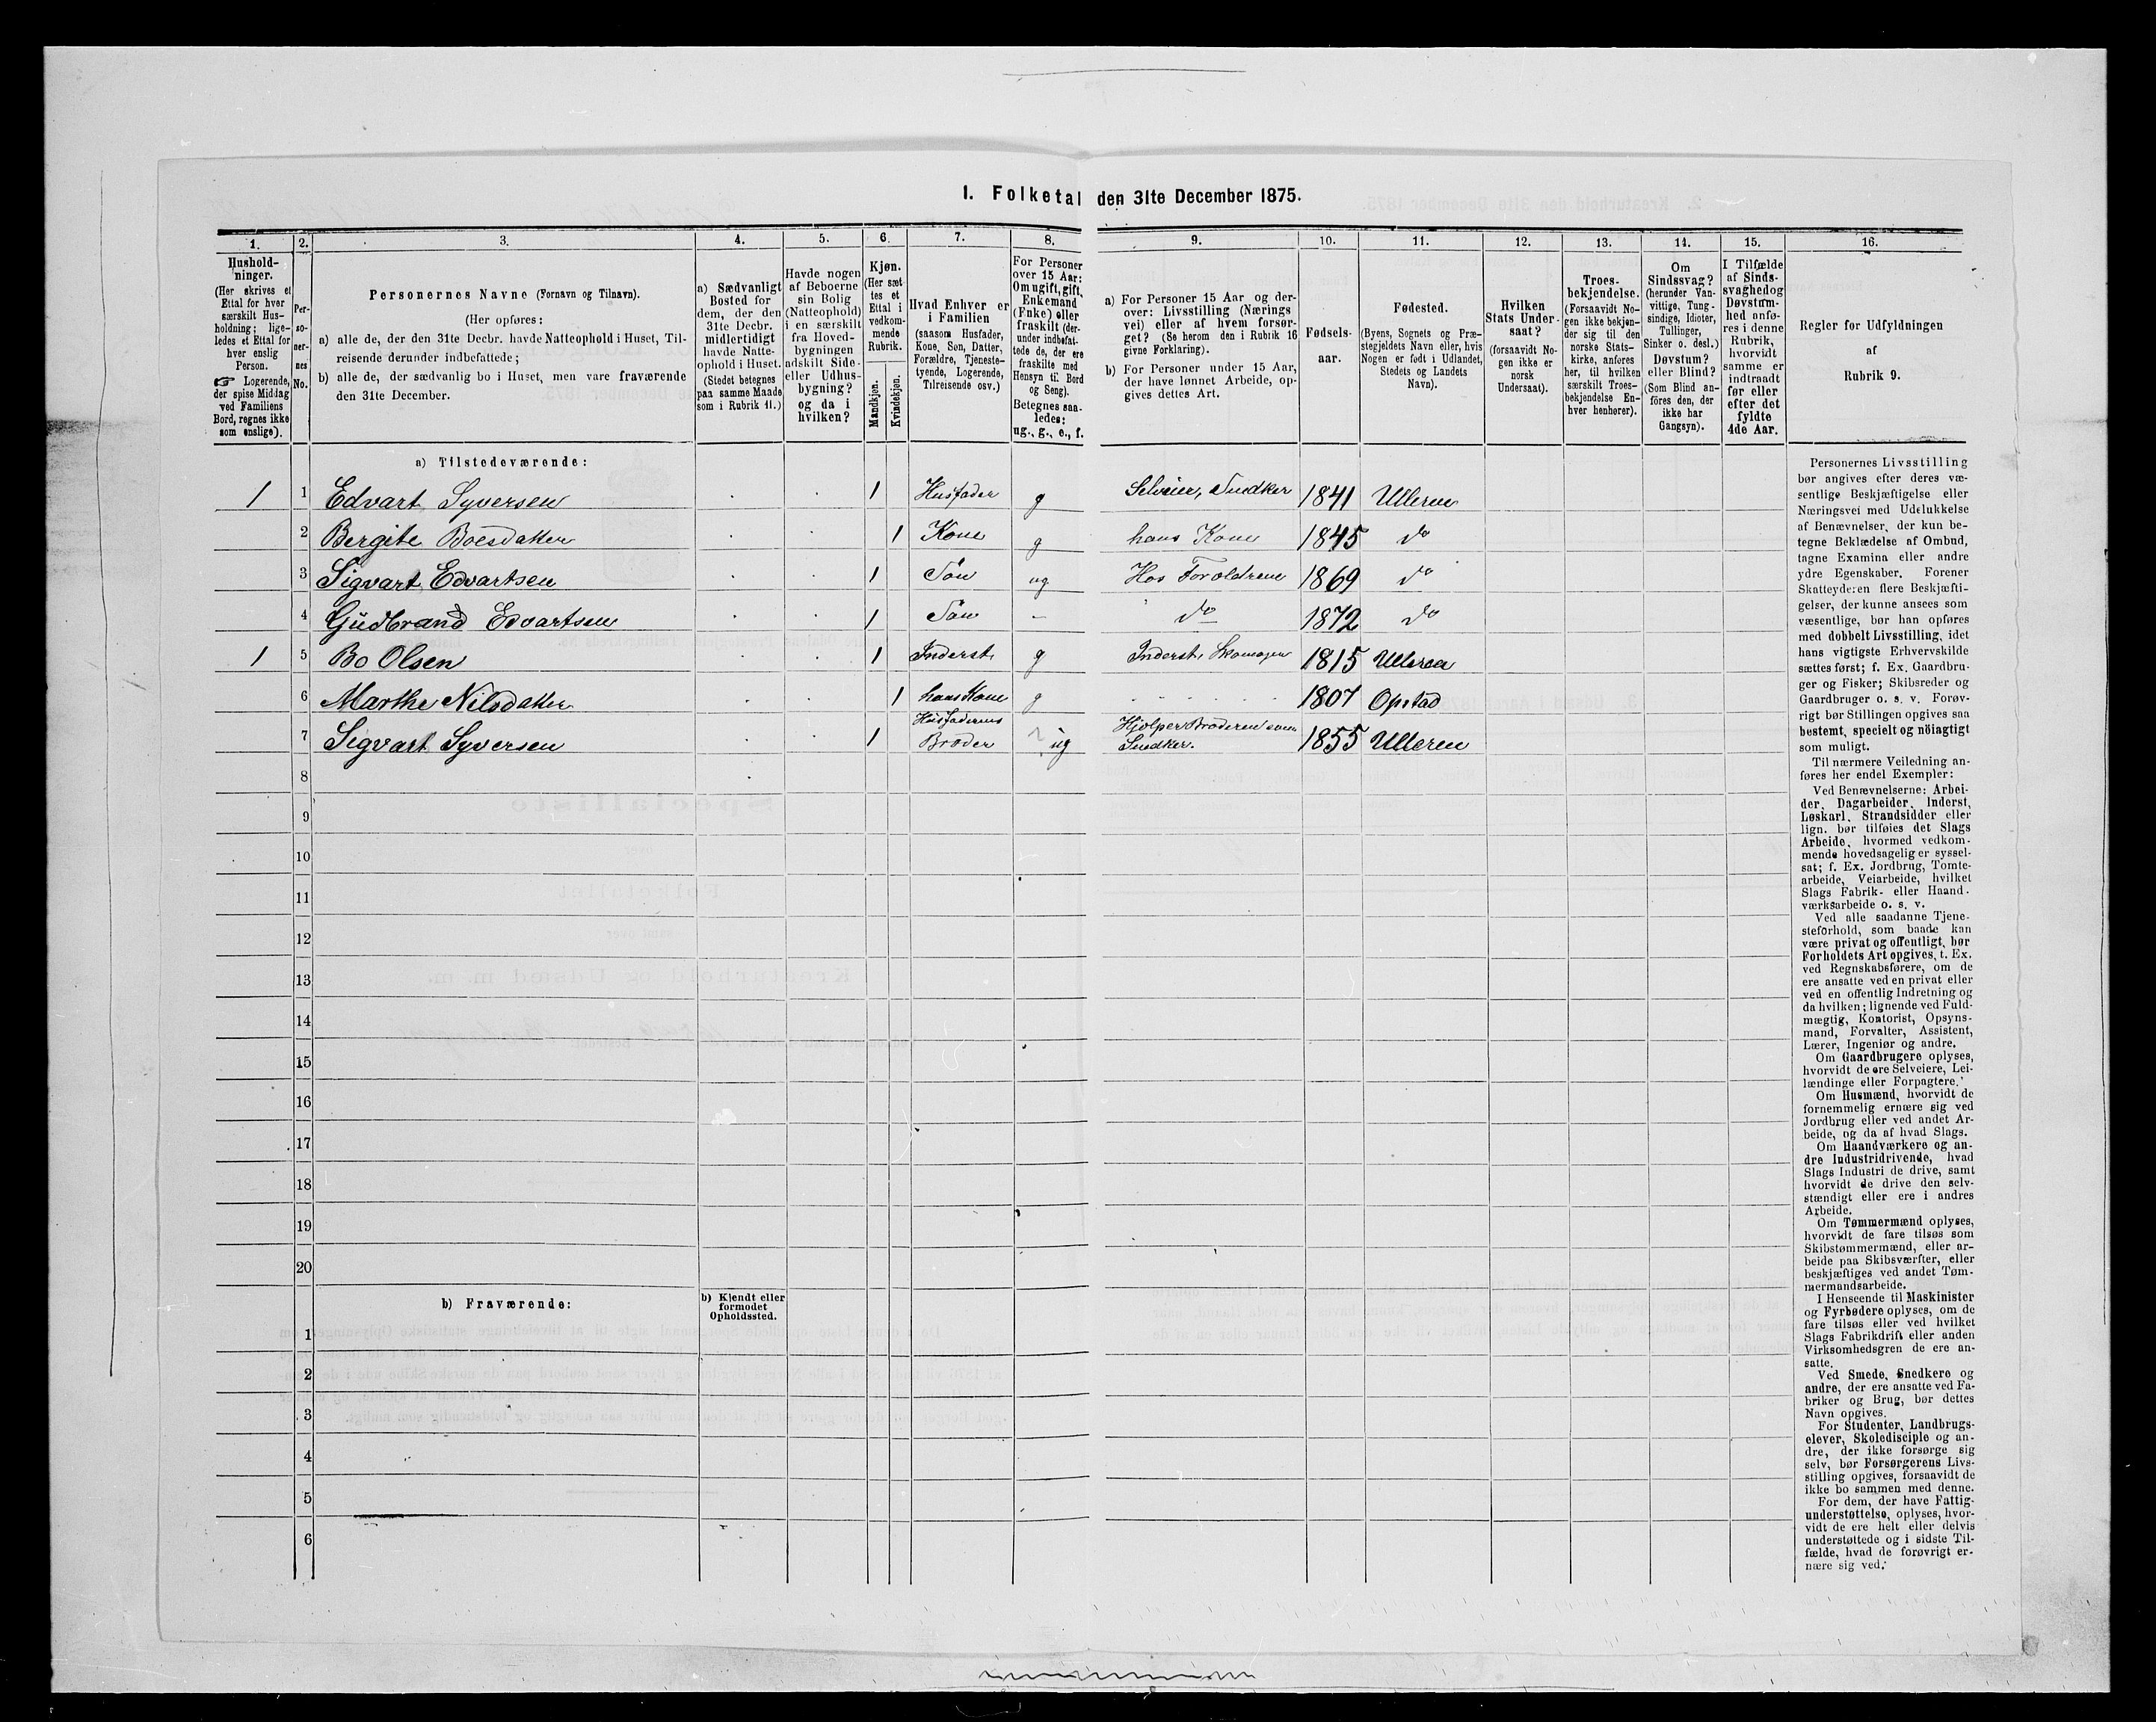 1. Folketal den 31te December 1875.
1. 2. 3. 4. 5. 6. 7. 8. 9. 10. 11. 12. 13. 14. 15. 16.
Hushold-
ninger.
(Her skrives et
Ettal for hver
særskilt Hus-
holdning; lige-
ledes et Ettal for
hver enslig
Person.
☞ Logerende,
der spise Middag
ved Familiens
Bord, regnes ikke
som enslige).
Per-
so-
ner-
nes
No.
Personernes Navne (Fornavn og Tilnavn).
(Her opføres:
a) alle de, der den 31te Decbr. havde Natteophold i Huset, Til-
reisende derunder indbefattede;
b) alle de, der sædvanlig bo i Huset, men vare fraværende
den 31te December.
a) Sædvanligt
Bosted for
dem, der den
31te Decbr.
midlertidigt
havde Natte-
ophold i Huset.
(Stedet betegnes
paa samme Maade
som i Rubrik 11.)
Havde nogen
af Beboerne
sin Bolig
(Natteophold)
i en særskilt
fra Hoved-
bygningen
adskilt Side-
eller Udhus-
bygning?
og da i
hvilken?
Kjøn.
(Her sæt-
tes et
Ettal i
vedkom-
mende
Rubrik.
Mandkjøn.
Kvindekjøn.
Hvad Enhver er
i Familien
(saasom Husfader,
Kone, Søn, Datter,
Forældre, Tjeneste-
tyende, Logerende,
Tilreisende osv.)
For Personer
over 15 Aar:
Om ugift, gift,
Enkemand
(Enke) eller
fraskilt (der-
under indbefat-
tede de, der ere
fraskilte med
Hensyn til Bord
og Seng).
Betegnes saa-
ledes:
ug., g., e., f.
a) For Personer 15 Aar og der-
over: Livsstilling (Nærings
vei) eller af hvem forsør-
get? (Se herom den i Rubrik 16
givne Forklaring).
b) For Personer under 15 Aar,
der have lønnet Arbeide, op-
gives dettes Art.
Fødsels-
aar.
Fødested.
(Byens, Sognets og Præ-
stegjeldets Navn eller, hvis
Nogen er født i Udlandet,
Stedets og Landets
Navn).
Hvilken
Stats Under-
saat?
(forsaavidt No-
gen ikke er
norsk
Undersaat).
Troes-
bekjendelse.
(Forsaavidt No-
gen ikke bekjen-
der sig til den
norske Stats-
kirke, anføres
her, til hvilken
særskilt Troes-
bekjendelse En-
hver henhører).
Om
Sindssvag?
(herunder Van-
vittige, Tung-
sindige, Idioter,
Tullinger,
Sinker o. desl.)
Døvstum?
eller Blind?
(Som Blind an-
føres den, der
ikke har
Gangsyn).
I Tilfælde
af Sinds-
svaghed og
Døvstum-
hed anfø-
res i denne
Rubrik,
hvorvidt
samme er
indtraadt
før eller
efter det
fyldte
4de Aar.
Regler for Udfyldningen
af
Rubrik 9.
a) Tilstedeværende:
1 1 Edvart Syversen 1 Husfader g Selveier, Snedker 1841 Ulleren
2 Bergite Boesdatter 1 Kone g hans Kone 1845 do
3 Sigvart Edvartsen 1 Søn ug Hos Forældrene 1869 do
4 Gudbrand Edvartsen 1 Søn - do 1872 do
1 5 Bo Olsen 1 Inderst g Inderst, Skomager 1815 Ulleren
6 Marthe Nilsdatter 1 hans Kone g 1807 Opstad
7 Sigvart Syversen 1 Husfaderens Broder ug Hjelper Broderen som Snedker. 1855 Ulleren
8
9
10
11
12
13
14
15
16
17
18
19
20
b) Fraværende:
b) Kjendt eller
formodet
Opholdssted.
1
2
3
4
5
6
Personernes Livsstilling
bør angives efter deres væ-
sentlige Beskjæftigelse eller
Næringsvei med Udelukkelse
af Benævnelser, der kun be-
tegne Beklædelse af Ombud,
tagne Examina eller andre
ydre Egenskaber. Forener
Skatteyderen flere Beskjæfti-
gelser, der kunne ansees som
væsentlige, bør han opføres
med dobbelt Livsstilling, idet
hans vigtigste Erhvervskilde
sættes først; f. Ex. Gaardbru-
ger og Fisker; Skibsreder og
Gaardbruger o. s. v. Forøv-
rigt bør Stillingen opgives saa
bestemt, specielt og nöiagtigt
som muligt.
Til nærmere Veiledning an-
føres her endel Exempler:
Ved Benævnelserne: Arbei-
der, Dagarbeider, Inderst,
Løskarl, Strandsidder eller
lign. bør tilføies det Slags
Arbeide, hvormed vedkom-
mende hovedsagelig er syssel-
sat; f. Ex. Jordbrug, Tomte-
arbeide, Veiarbeide, hvilket
Slags Fabrik- eller Haand-
værksarbeide o. s. v.
Ved alle saadanne Tjene-
steforhold, som baade kan
være privat og offentligt, bør
Forholdets Art opgives, t. Ex.
ved Regnskabsførere, om de
ere ansatte ved en privat eller
ved en offentlig Indretning og
da hvilken; lignende ved Fuld-
mægtig, Kontorist, Opsyns-
mand, Forvalter, Assistent,
Lærer, Ingeniør og andre.
Om Gaardbrugere oplyses,
hvorvidt de ere Selveiere, Lei-
lændinge eller Forpagtere.
Om Husmænd, hvorvidt de
fornemmelig ernære sig ved
Jordbrug eller ved andet Ar-
beide, og da af hvad Slags.
Om Haandværkere og an-
dre Industridrivende, hvad
Slags Industri de drive, samt
hvorvidt de drive den selv-
stændigt eller ere i andres
Arbeide.
Om Tømmermænd oplyses,
hvorvidt de fare tilsøs som
Skibstømmermænd, eller ar-
beide paa Skibsværfter, eller
beskjæftiges ved andet Tøm-
mermandsarbeide.
I Henseende til Maskinister
og Fyrbødere oplyses, om de
fare tilsøs eller ved hvilket
Slags Fabrikdrift eller anden
Virksomhedsgren de ere an-
satte.
Ved Smede, Snedkere og
andre, der ere ansatte ved Fa-
briker og Brug, bør dettes
Navn opgives.
For Studenter, Landbrugs-
elever, Skoledisciple og an-
dre, der ikke forsørge sig
selv, bør Forsørgerens Livs-
stilling opgives, forsaavidt de
ikke bo sammen med denne.
For dem, der have Fattig-
understøttelse, oplyses, hvor-
vidt de ere helt eller delvis
understøttede og i sidste Til-
fælde, hvad de forøvrigt er-
nære sig ved.